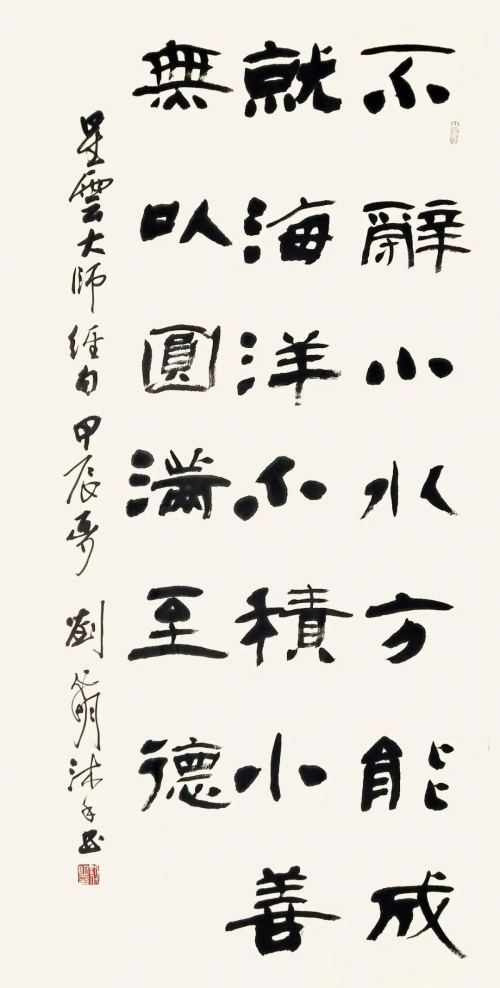 不辭小水方能成
就海洋不積小善
無以圓滿至德
星雲大師經句甲辰夏劉
沐手書